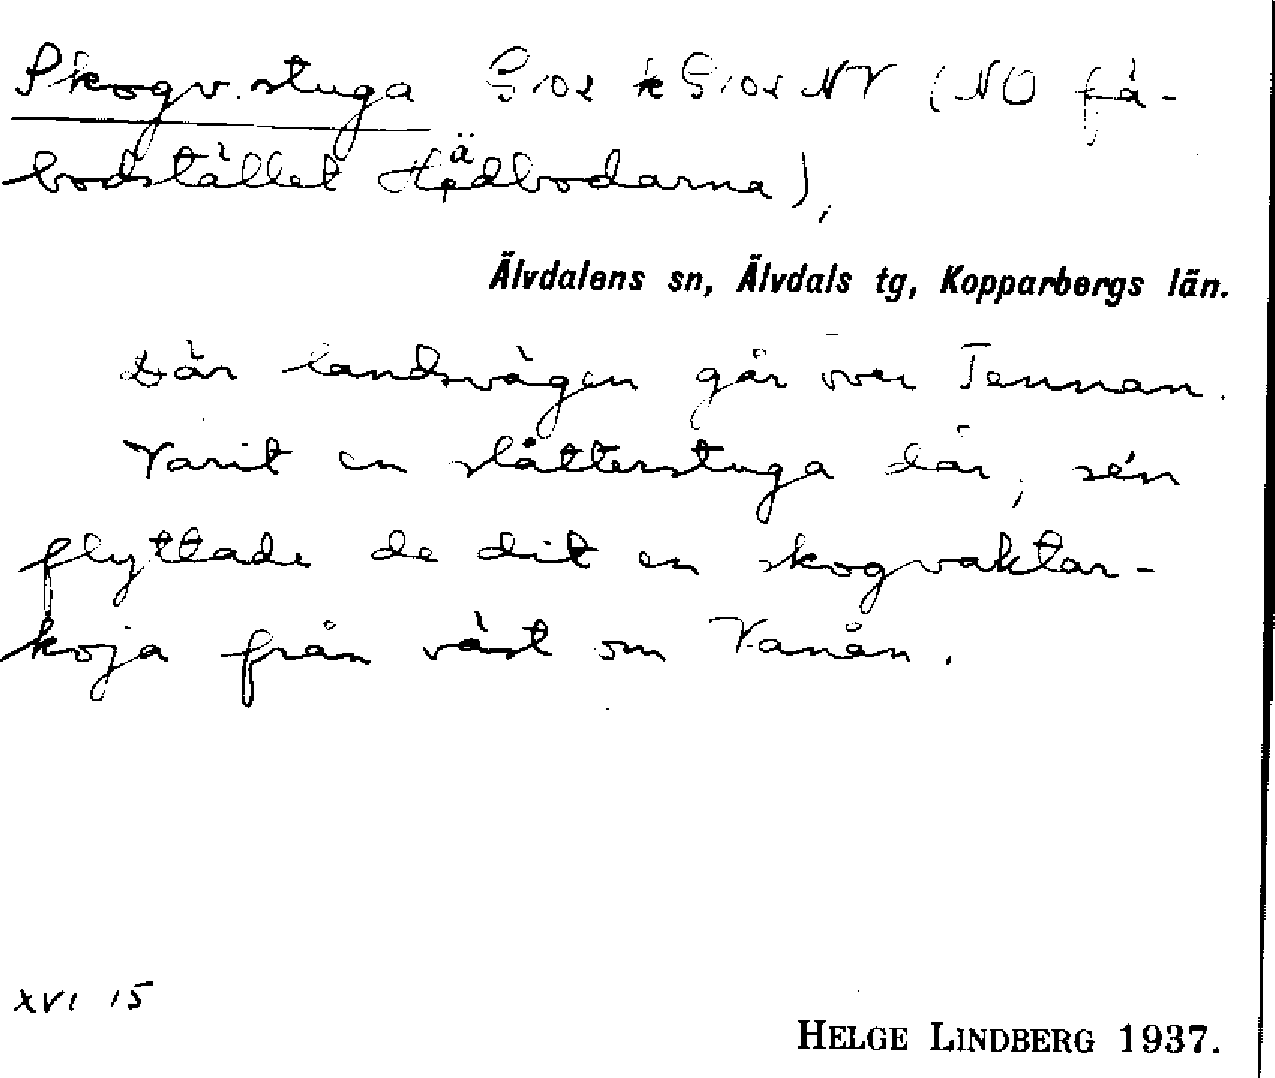 Skogv. stuga G 102 k G 102 NV (NO fä-
bodstället Hädbodarna),
Älvdalens sn, Älvdals tg, Kopparbergs län.
Där landsvägen går över Tennan.
Varit en slåtterstuga där, sén
flyttade de dit en skogvaktar-
koja från väst om Vanån.
XVI 15
HELGE LINDBERG 1937.